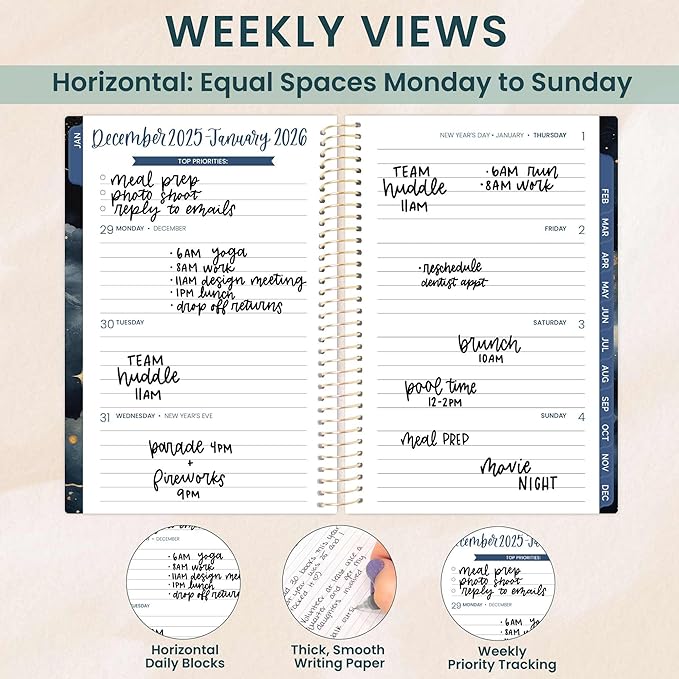 WEEKLY VIEWS
Horizontal: Equal Spaces Monday to Sunday
JAN
December 2025-January 2026
TOP PRIORITIES:
meal prep
photo shoot
reply to emails
29 MONDAY • DECEMBER
• 6AM yoga
• 8AM work
• 11AM design meeting
• 1PM lunch
• drop off returns
30 TUESDAY
TEAM
huddle
11AM
31 WEDNESDAY • NEW YEAR'S EVE
parade 4PM
+
fireworks
9PM
NEW YEAR'S DAY • JANUARY • THURSDAY 1
TEAM
huddle
11AM
• 6AM run
• 8AM work
FRIDAY 2
• reschedule
dentist appt
SATURDAY 3
brunch
10AM
pool time
12-2PM
SUNDAY 4
meal PREP
movie
NIGHT
FEB
MAR
APR
MAY
JUN
JUL
AUG
SEP
OCT
NOV
DEC
• DECEMBER
• 6AM yoga
• 8AM work
• 11AM design mee
• 1PM lunch
• drop off return
TUESDAY
Horizontal
Daily Blocks
30 books this year
Volunteer at
daughters involved
Thick, Smooth
Writing Paper
cember 2025-Ja
TOP PRIORITIES:
meal prep
photo shoot
reply to emails
29 MONDAY • DECEMBER
• 6AM yo
• 8AM w
Weekly
Priority Tracking